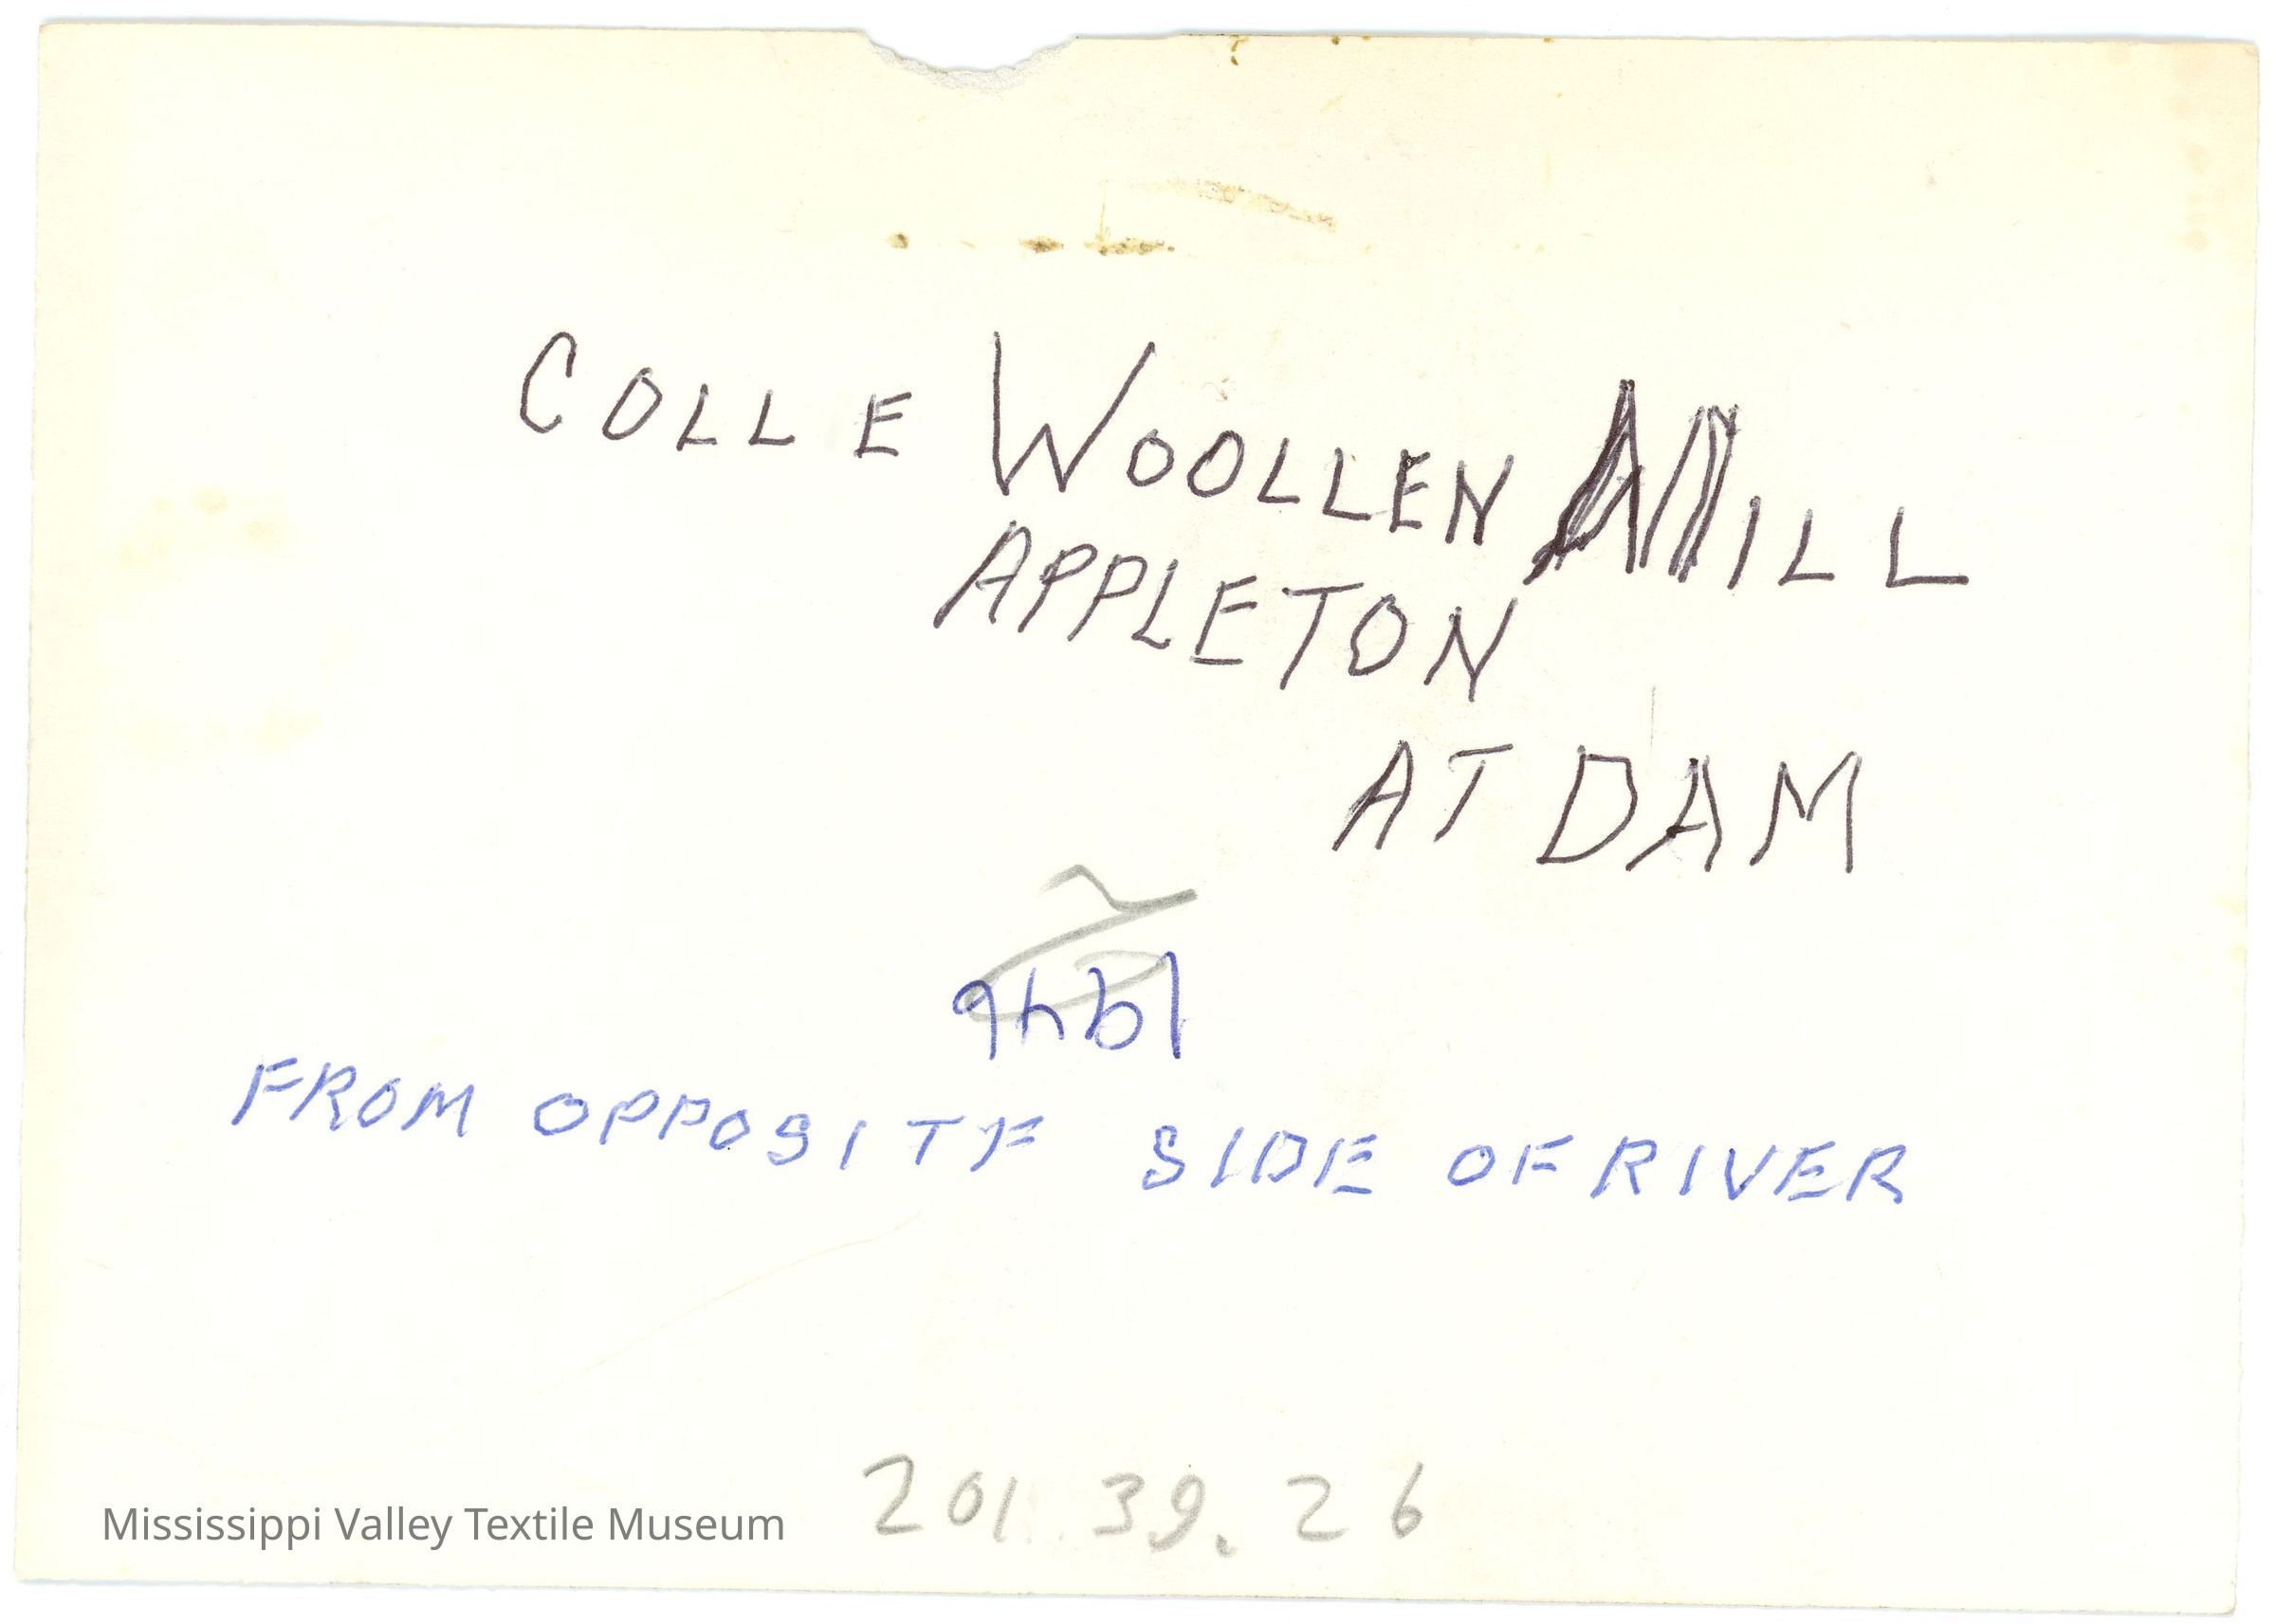 COLLE WOOLLEN MILL
APPLETON
AT DAM
1946
FROM OPPOSITE SIDE OF RIVER
201 39. 26
Mississippi Valley Textile Museum